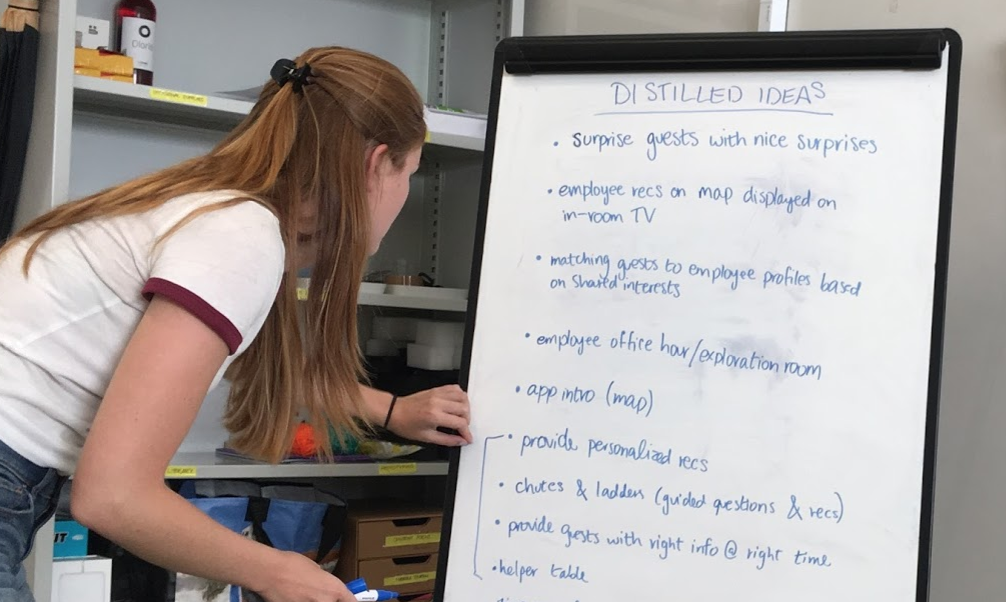 DISTILLED IDEAS
• surprise guests with nice surprises
• employee recs on map displayed on
in-room TV
• matching guests to employee profiles based
on shared interests
• employee office hour/exploration room
• app intro (map)
• provide personalized recs
• chutes & ladders (guided questions & recs)
• provide guests with right info @ right time
• helper table